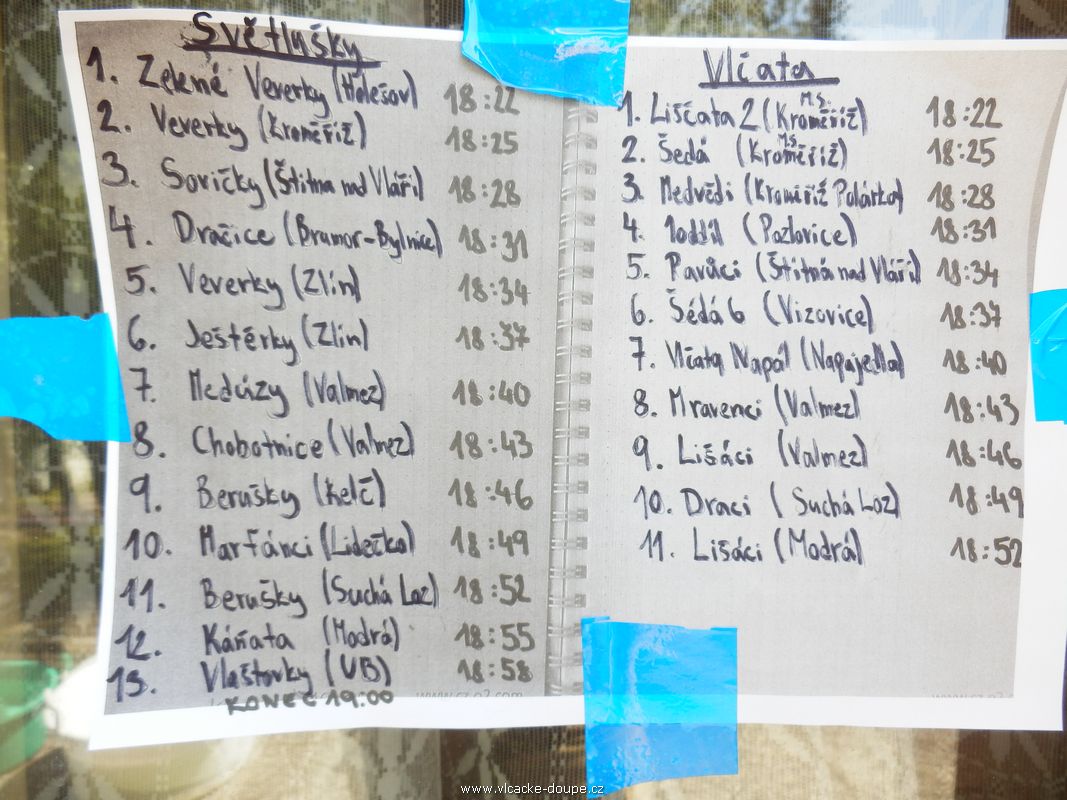 Světlušky
1. Zelené Veverky (Holešov) 18:22
2. Veverky (Kroměříž) 18:25
3. Sovičky (Štítná nad Vláří) 18:28
4. Dračice (Brumov-Bylnice) 18:31
5. Veverky (Zlín) 18:34
6. Ještěrky (Zlín) 18:37
7. Medúzy (Valmez) 18:40
8. Chobotnice (Valmez) 18:43
9. Berušky (Kelč) 18:46
10. Marťánci (Lidečko) 18:49
11. Berušky (Suchá Loz) 18:52
12. Káňata (Modrá) 18:55
13. Vlaštovky (UB) 18:58
KONEC 19:00
Vlčata
1. Liščata 2 (M.S. Kroměříž) 18:22
2. Šedá (M.S. Kroměříž) 18:25
3. Medvědi (Kroměříž Palárka) 18:28
4. 1oddíl (Pozlovice) 18:31
5. Pavouci (Štítná nad Vláří) 18:34
6. Šédá 6 (Vizovice) 18:37
7. Vlčata Napál (Napajedla) 18:40
8. Mravenci (Valmez) 18:43
9. Lišáci (Valmez) 18:46
10. Draci (Suchá Loz) 18:49
11. Lišáci (Modrá) 18:52
www.vlcacke-doupe.cz